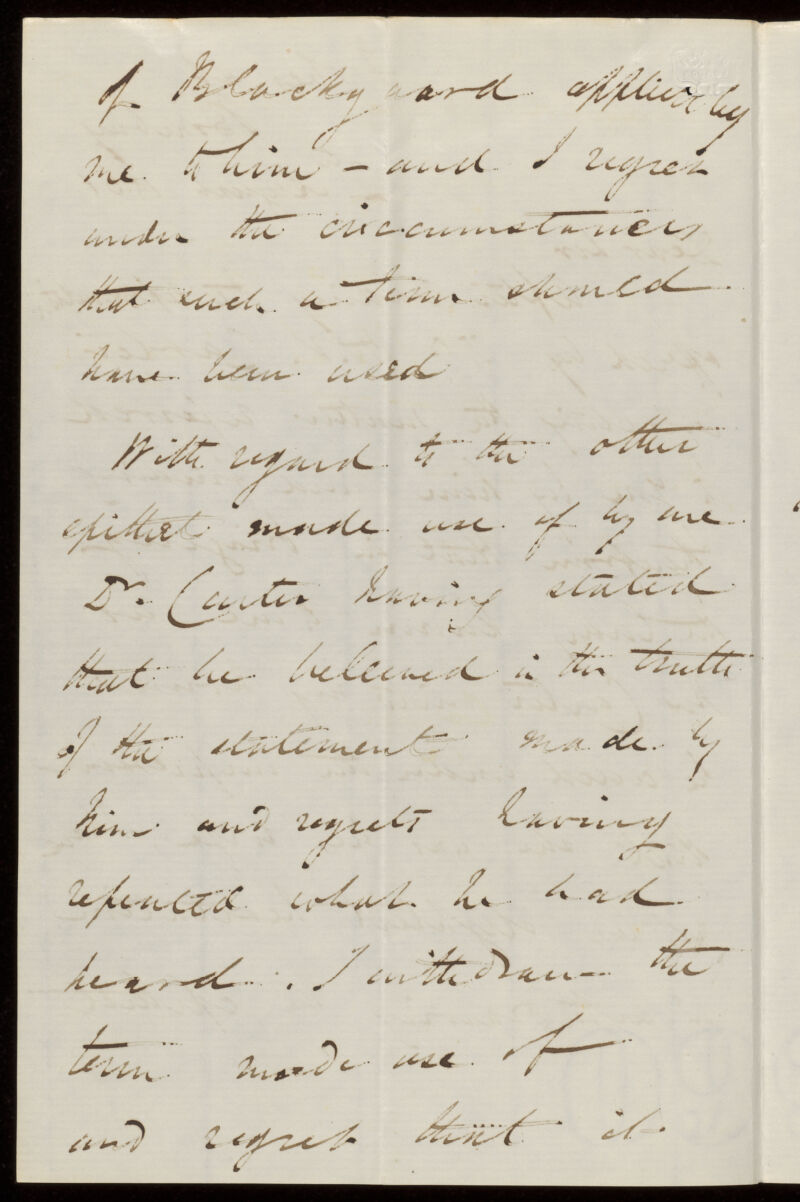 of Blackguard applied by
me to him – and I regret
under the circumstances
that such a term should
have been used
With regard to the other
epithet made use of by me
Dr. Carter having stated
that he believed in the truth
of the statement made by
him and regrets having
repeated what he had
heard. I withdraw the
term made use of
and regret that it